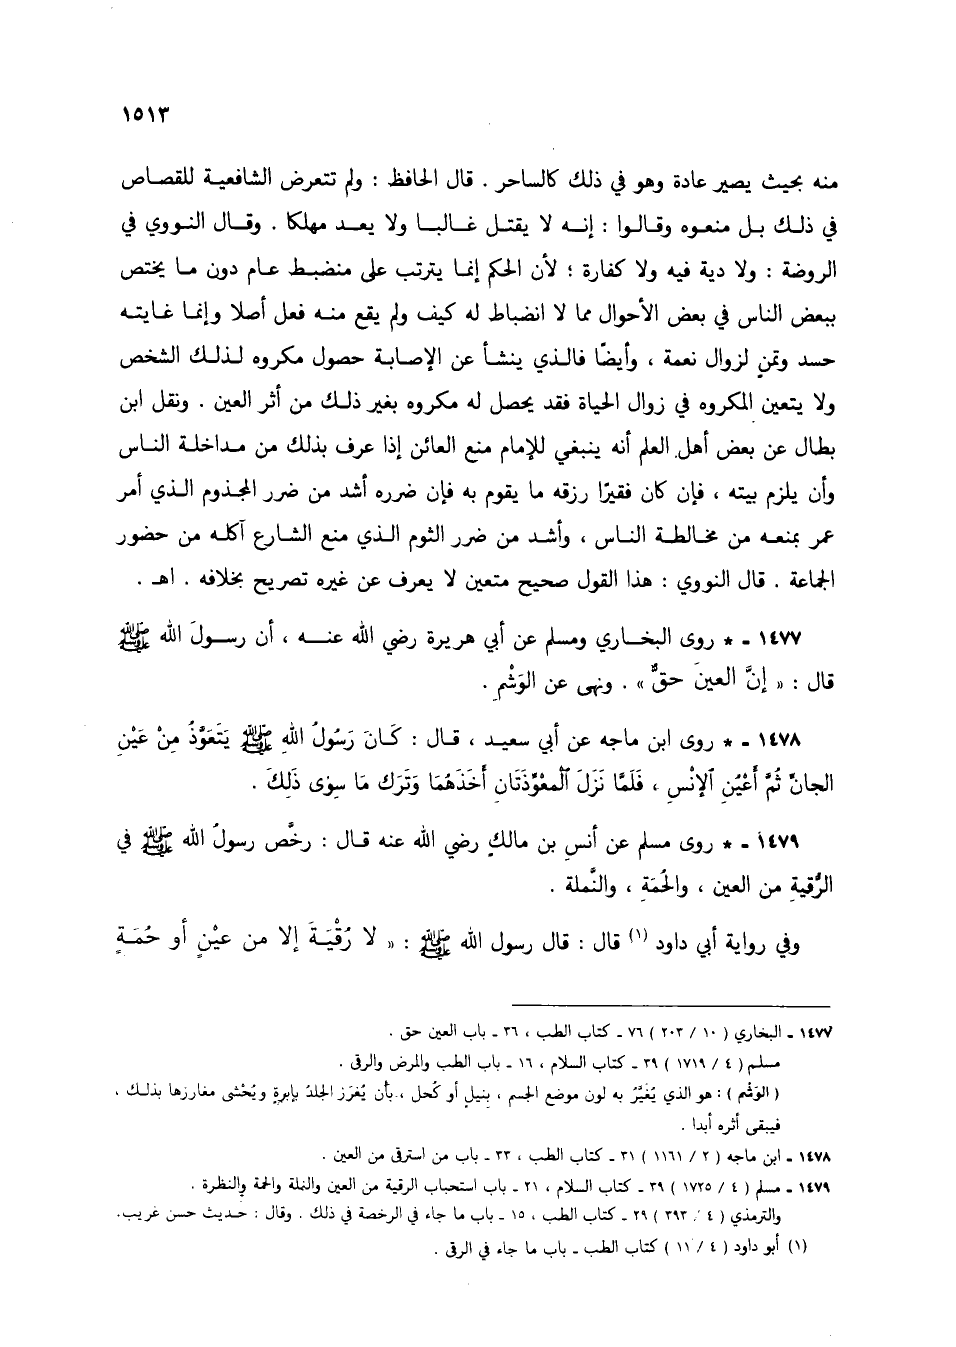 ١٥١٣
منه بحيث يصير عادة وهو في ذلك كالساحر . قال الحافظ : ولم تتعرض الشافعية للقصاص
في ذلك بل منعوه وقالوا : إنه لا يقتل غالبا ولا يعد مهلكا . وقال النووي في
الروضة : ولا دية فيه ولا كفارة ؛ لأن الحكم إنما يترتب على منضبط عام دون ما يختص
ببعض الناس في بعض الأحوال مما لا انضباط له كيف ولم يقع منه فعل أصلا وإنما غايته
حسد وتمنٍ لزوال نعمة ، وأيضًا فالذي ينشأ عن الإصابة حصول مكروه لذلك الشخص
ولا يتعين المكروه في زوال الحياة فقد يحصل له مكروه بغير ذلك من أثر العين . ونقل ابن
بطال عن بعض أهل العلم أنه ينبغي للإمام منع العائن إذا عرف بذلك من مداخلة الناس
وأن يلزم بيته ، فإن كان فقيرًا رزقه ما يقوم به فإن ضرره أشد من ضرر المجذوم الذي أمر
عمر بمنعه من مخالطة الناس ، وأشد من ضرر الثوم الذي منع الشارع آكله من حضور
الجماعة . قال النووي : هذا القول صحيح متعين لا يعرف عن غيره تصريح بخلافه . اهـ .
١٤٧٧ - * روى البخاري ومسلم عن أبي هريرة رضي الله عنه ، أن رسولَ الله ﷺ
قال : « إنَّ العينَ حقٌّ » . ونهى عن الوَشْمِ .
١٤٧٨ - * روى ابن ماجه عن أبي سعيد ، قال : كَانَ رَسُولُ اللهِ ﷺ يَتَعَوَّذُ مِنْ عَيْنِ
الجانِّ ثُمَّ أَعْيُنِ الإنْسِ ، فَلَمَّا نَزَلَ الْمعْوِّذَتَانِ أَخَذَهُمَا وَتَرَك مَا سِوٰى ذَلِكَ .
١٤٧٩ - * روى مسلم عن أنسِ بن مالكٍ رضي الله عنه قال : رخَّص رسولُ الله ﷺ في
الرُّقيةِ من العين ، والحُمَةِ ، والنَّملة .
وفي رواية أبي داود (١) قال : قال رسول الله ﷺ : « لا رُقْيَةَ إلا من عيْنٍ أو حُمَةٍ
١٤٧٧ - البخاري ( ١٠ / ٢٠٣ ) ٧٦ - كتاب الطب ، ٣٦ - باب العين حق .
مسلم ( ٤ / ١٧١٩ ) ٣٩ - كتاب السلام ، ١٦ - باب الطب والمرض والرقى .
( الوَشْم ) : هو الذي يُغَيَّرُ به لون موضع الجسم ، بنيلٍ أو كُحل ، بأن يُغرَز الجلدُ بإبرةٍ ويُحْشى مغارزها بذلك ،
فيبقى أثره أبدا .
١٤٧٨ - ابن ماجه ( ٢ / ١١٦١ ) ٣١ - كتاب الطب ، ٣٣ - باب من استرقى من العين .
١٤٧٩ - مسلم ( ٤ / ١٧٢٥ ) ٣٩ - كتاب السلام ، ٢١ - باب استحباب الرقية من العين والنملة والحمة والنظرة .
والترمذي ( ٤ / ٣٩٣ ) ٢٩ - كتاب الطب ، ١٥ - باب ما جاء في الرخصة في ذلك . وقال : حديث حسن غريب.
(١) أبو داود ( ٤ / ١١ ) كتاب الطب - باب ما جاء في الرقى .